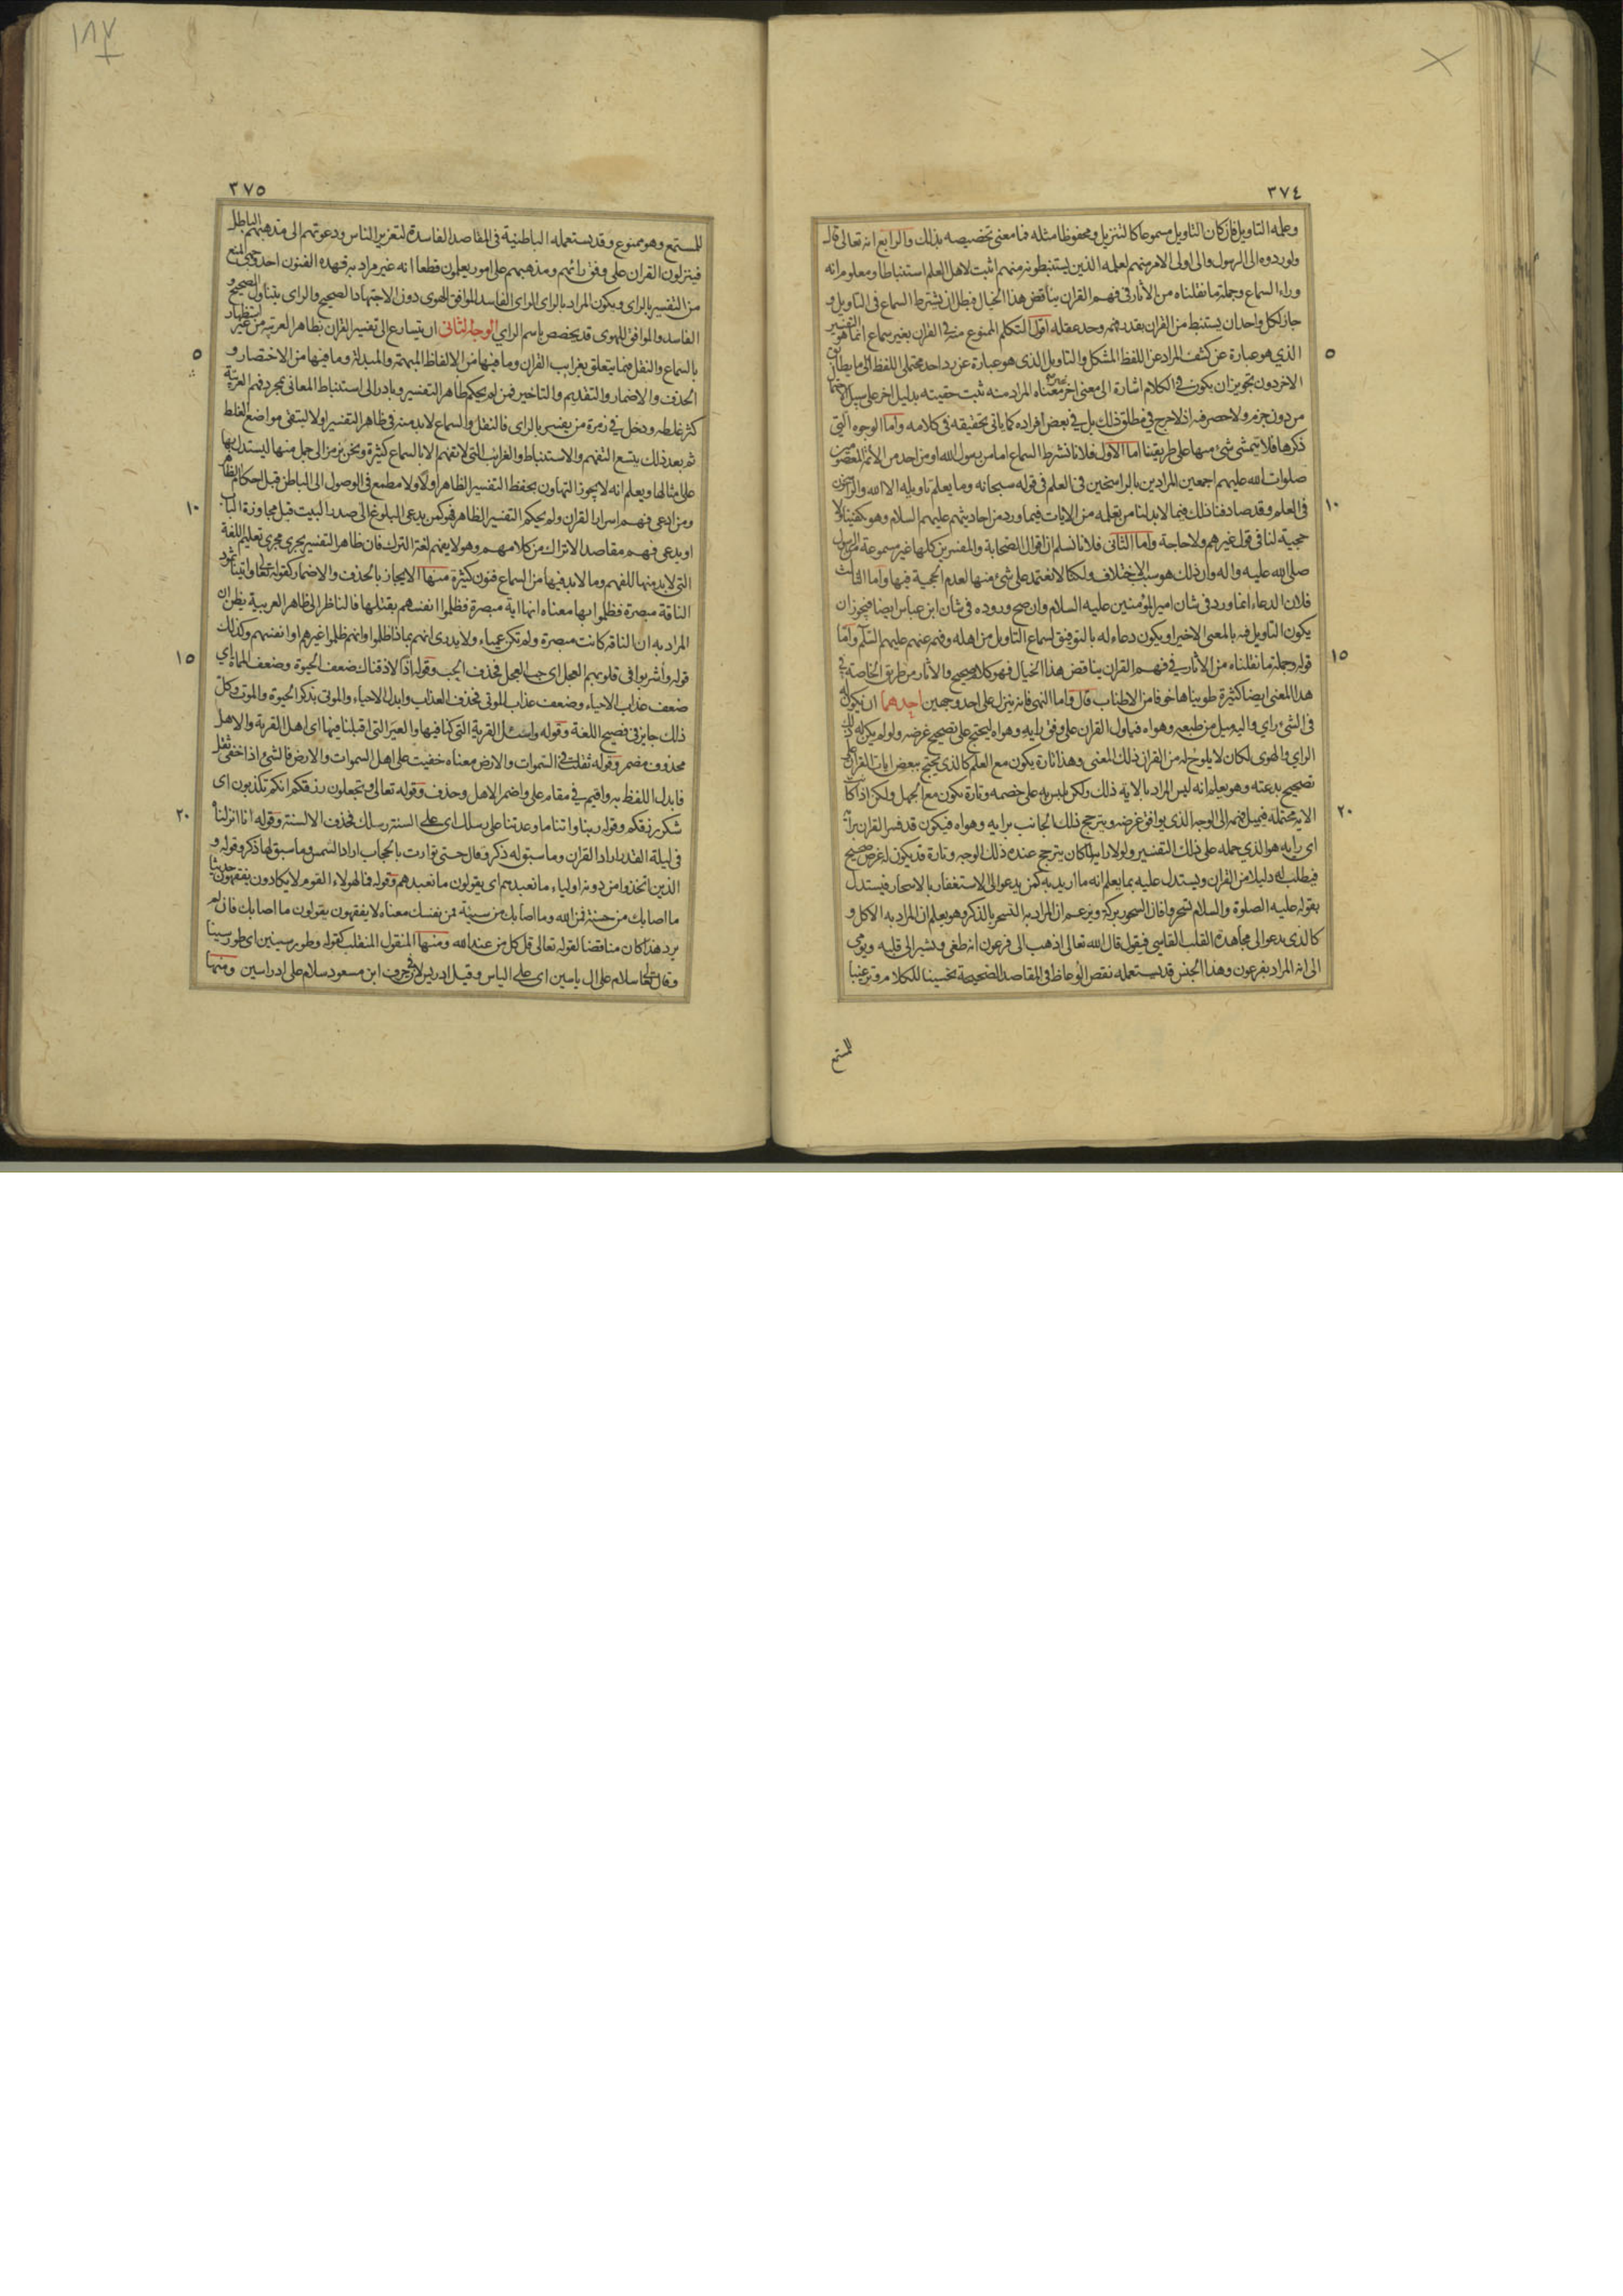 ٣٧٤
وعلمه التاويل فان كان التاويل مسموعا كالتنزيل ومحفوظا مثله فما معنى تخصيصه بذلك والرابع انه تعالى قال
ولو ردوه الى الرسول والى اولى الامر منهم لعلمه الذين يستنبطونه منهم اثبت لاهل العلم استنباطا ومعلوم انه
وراء السماع وجملة ما نقلناه من الاثار فى فهم القران يناقض هذا الخيال فبطل ان يشترط السماع فى التاويل و
جاز لكل واحد ان يستنبط من القران بقدر فهمه وحد عقله اقول التكلم الممنوع منه فى القران بغير سماع انما هو التفسير
٥
الذي هو عبارة عن كشف المراد عن اللفظ المشكل والتاويل الذى هو عبارة عن رد احد محتملى اللفظ الى ما يطابق
الاخر دون تجويز ان يكون فى الكلام اشارة الى معنى اخر معناه المراد منه ثبت حقيته بدليل اخر على سبيل الاحتمال
من دون جزم ولا حصر فيه اذ لا حرج فى مطلق ذلك بل فى بعض افراده كما ياتى تحقيقه فى كلامه واما الوجوه التي
ذكرها فلا يتمشى شئ منها على طريقتنا اما الاول فلانا نشترط السماع اما من رسول الله او من احد من الائمة المعصومين
صلوات الله عليهم اجمعين المرادين بالراسخين فى العلم فى قوله سبحانه وما يعلم تاويله الا الله والراسخون
١٠
فى العلم وقد صادفنا ذلك فيما لابد لنا من تعلمه من الايات فيما ورد من احاديثهم عليهم السلام وهو يكفينا ولا
حجية لنا فى قول غيرهم ولا حاجة واما الثانى فلانا نسلم ان اقوال الصحابة والمفسرين كلها غير مسموعة من الرسول
صلى الله عليه واله وان ذلك هو سبب الاختلاف ولكنا لا نعتمد على شئ منها لعدم الحجية فيها واما الثالث
فلان الدعاء انما ورد فى شان امير المؤمنين عليه السلام وان صح وروده فى شان ابن عباس ايضا فيجوز ان
يكون التاويل فيه بالمعنى الاخير او يكون دعاء له بالتوفيق لسماع التاويل من اهله وفهم عنهم عليهم السلم واما
١٥
قوله وجملة ما نقلناه من الاثار فى فهم القران يناقض هذا الخيال فهو كلام صحيح والاثار من طريق الخاصة فى
هذا المعنى ايضا كثيرة طويناها خوفا من الاطناب قال واما النهى فانه ينزل على احد وجهين احدهما ان يكون له
فى الشئ راي واليه ميل من طبعه وهواه فياول القران على وفق رايه وهواه ليحتج على تصحيح غرضه ولو لم يكن له ذلك
الراي والهوى لكان لا يلوح له من القران ذلك المعنى وهذا تارة يكون مع العلم كالذي يحتج ببعض ايات القران على
تصحيح بدعته وهو يعلم انه ليس المراد بالاية ذلك ولكن يلبس به على خصمه وتارة يكون مع الجهل ولكن اذا كانت
٢٠
الاية محتملة فيميل فهمه الى الوجه الذى يوافق غرضه ويترجح ذلك الجانب برايه وهواه فيكون قد فسر القران برأيه
اى رايه هو الذي حمله على ذلك التفسير ولولا رايه لما كان يترجح عنده ذلك الوجه وتارة قد يكون له غرض صحيح
فيطلب له دليلا من القران ويستدل عليه بما يعلم انه ما اريد به كمن يدعو الى الاستغفار بالاسحار فيستدل
بقوله عليه الصلوة والسلام تسحروا فان السحور بركة ويزعم ان المراد به التسحر بالذكر وهو يعلم ان المراد به الاكل و
كالذى يدعو الى مجاهدة القلب القاسى فيقول قال الله تعالى اذهب الى فرعون انه طغى ويشير الى قلبه ويومى
الى انه المراد بفرعون وهذا الجنس قد يستعمله بعض الوعاظ فى المقاصد الصحيحة تحسينا للكلام وترغيبا
للمستمع
٣٧٥
للمستمع وهو ممنوع وقد يستعمله الباطنية فى المقاصد الفاسدة لتغرير الناس ودعوتهم الى مذهبهم الباطل
فينزلون القران على وفق رائهم ومذهبهم على امور يعلمون قطعا انه غير مراد به فهذه الفنون احد وجهى المنع
من التفسير بالراى ويكون المراد بالراى الراى الفاسد الموافق للهوى دون الاجتهاد الصحيح والراى يتناول الصحيح و
الفاسد والموافق للهوى قد يخصص باسم الراي الوجه الثانى ان يتسارع الى تفسير القران بظاهر العربية من غير استظهار
٥
بالسماع والنقل فيما يتعلق بغرايب القران وما فيها من الالفاظ المبهمة والمبدلة وما فيها من الاختصار و
الحذف والاضمار والتقديم والتاخير فمن لم يحكم ظاهر التفسير وبادر الى استنباط المعانى بمجرد فهم العربية
كثر غلطه ودخل فى زمرة من يفسر بالراى فالنقل والسماع لابد منه فى ظاهر التفسير اولا ليتقى مواضع الغلط
ثم بعد ذلك يتسع التفهم والاستنباط والغرايب التى لا تفهم الا بالسماع كثيرة ونحن نرمز الى جمل منها ليستدل بها
على امثالها ويعلم انه لا يجوز التهاون بحفظ التفسير الظاهر اولا ولا مطمع فى الوصول الى الباطن قبل احكام الظاهر
١٠
ومن ادعى فهم اسرار القران ولم يحكم التفسير الظاهر فهو كمن يدعى البلوغ الى صدر البيت قبل مجاوزة الباب
او يدعى فهم مقاصد الاتراك من كلامهم وهو لا يفهم لغة الترك فان ظاهر التفسير يجرى مجرى تعليم اللغة
التى لابد منها للفهم وما لابد فيها من السماع فنون كثيرة منها الايجاز بالحذف والاضمار كقوله تعالى واتينا ثمود
الناقة مبصرة فظلموا بها معناه انها اية مبصرة فظلموا انفسهم بقتلها فالناظر الى ظاهر العربية يظن ان
المراد به ان الناقة كانت مبصرة ولم تكن عمياء ولا يدرى انهم بماذا ظلموا وانهم ظلموا غيرهم او انفسهم وكذلك
١٥
قوله وأشربوا فى قلوبهم العجل اى حب العجل فحذف الحب وقوله اذا لاذقناك ضعف الحيوة وضعف المماة اي
ضعف عذاب الاحياء وضعف عذاب الموتى فحذف العذاب وابدل الاحياء والموتى بذكر الحيوة والموت وكل
ذلك جايز فى فصيح اللغة وقوله واسئل القرية التى كنا فيها والعير التى اقبلنا فيها اى اهل القرية والاهل
محذوف مضمر وقوله ثقلت فى السموات والارض معناه خفيت على اهل السموات والارض فالشئ اذا خفى ثقل
فابدل اللفظ به واقيم فى مقام على واضمر الاهل وحذف وقوله تعالى وتجعلون رزقكم انكم تكذبون اى
٢٠
شكر رزقكم وقوله ربنا واتنا ما وعدتنا على رسلك اى على السنة رسلك فحذف الالسنة وقوله انا انزلناه
فى ليلة القدر اراد القران وما سبق له ذكر وقال حتى توارت بالحجاب اراد الشمس وما سبق لها ذكر وقوله و
الذين اتخذوا من دونه اولياء ما نعبدهم اى يقولون ما نعبدهم وقوله فما لهولاء القوم لا يكادون يفقهون حديثا
ما اصابك من حسنة فمن الله وما اصابك من سيئة فمن نفسك معناه لا يفقهون يقولون ما اصابك فان لم
يرد هذا كان مناقضا لقوله تعالى قل كل من عند الله ومنها المنقول المنقلب كقوله وطور سينين اى طور سينا
وقال تعالى سلام على ال ياسين اى على الياس وقيل ادريس لان فى حرف ابن مسعود سلام على ادراسين ومنها